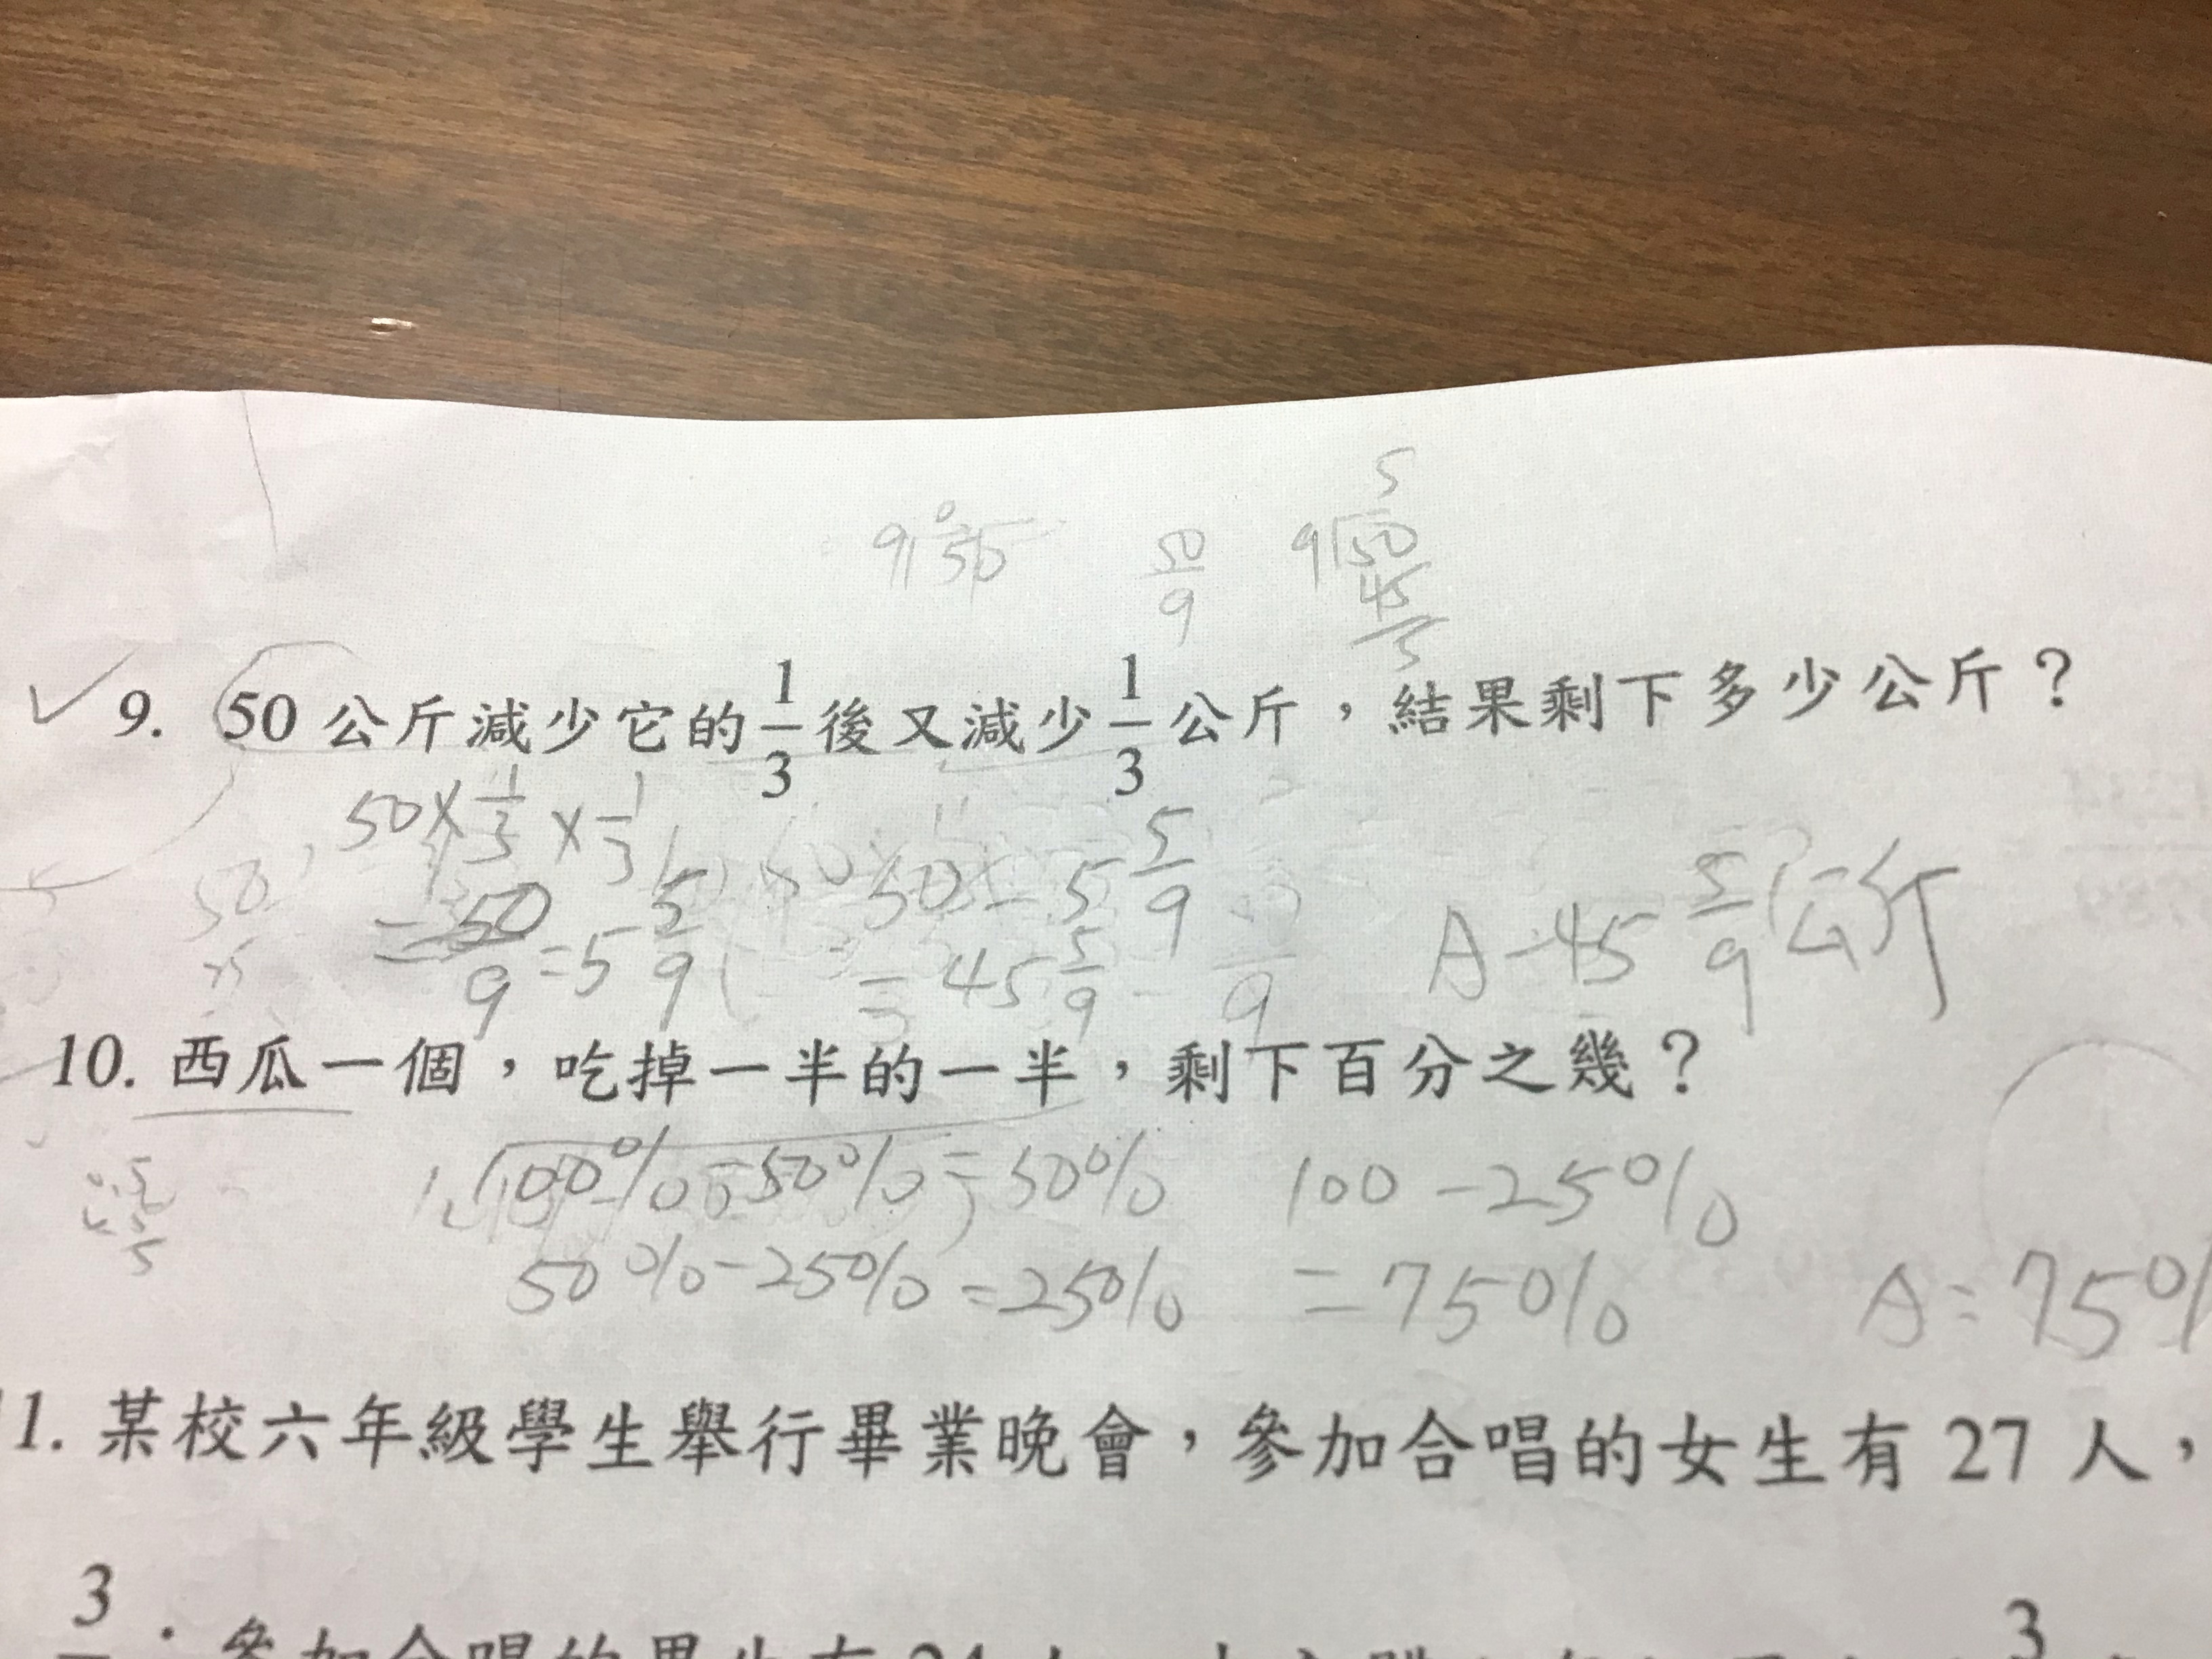 5
9 50 50/9 9 50
45
5
9. 50 公斤減少它的 1/3 後又減少 1/3 公斤，結果剩下多少公斤？
50 × 1/3 × 1/3
= 50/9 = 5 5/9 50 - 5 5/9
= 45 5/9
A - 45 5/9 公斤
10. 西瓜一個，吃掉一半的一半，剩下百分之幾？
100% - 50% = 50% 100 - 25%
50% - 25% = 25% = 75% A = 75%
11. 某校六年級學生舉行畢業晚會，參加合唱的女生有 27 人，
3
3